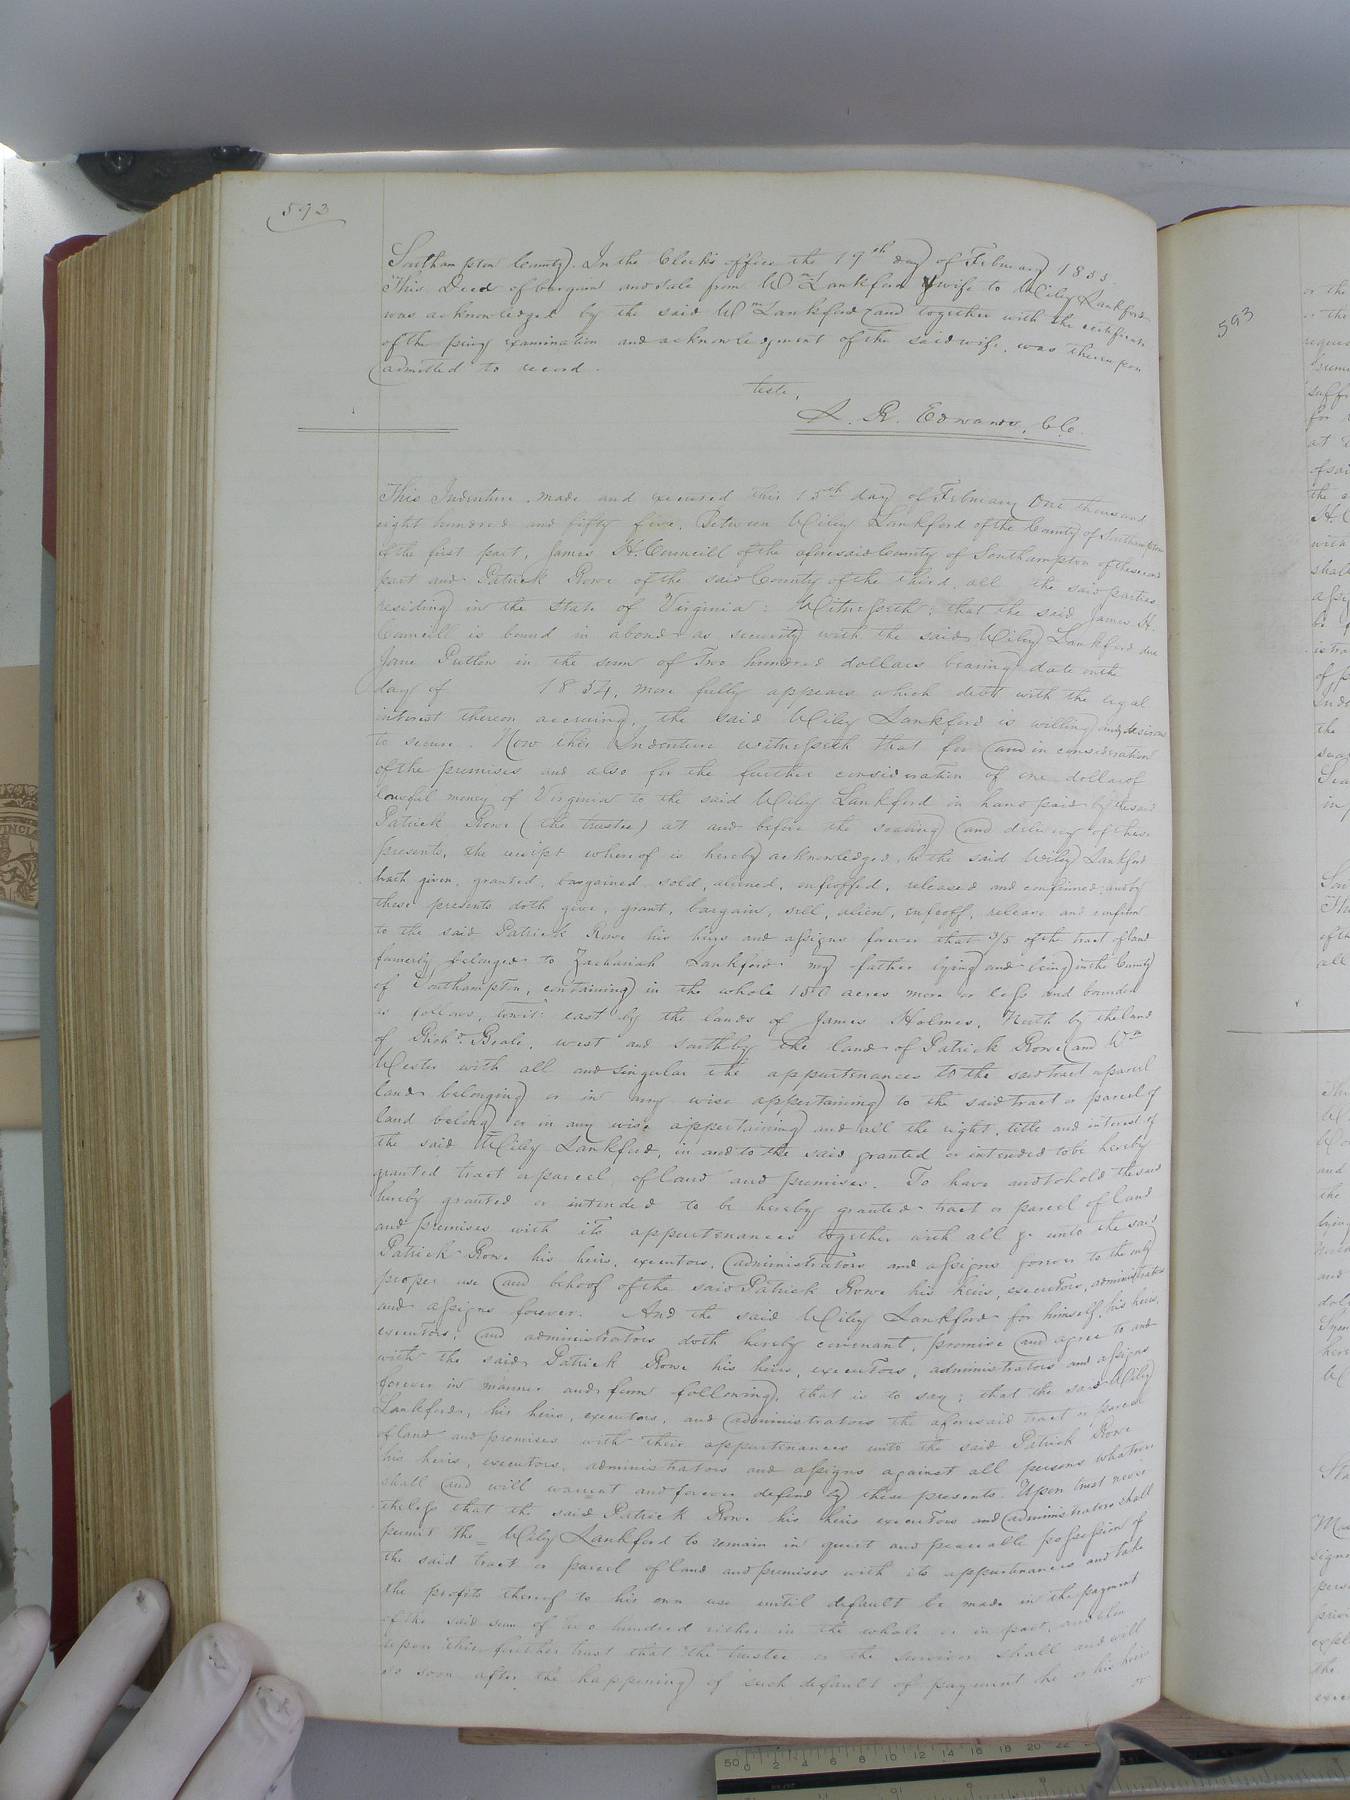 593
Southampton County. In the Clerk's office the 19th day of February 1855.
This Deed of bargain and sale from Wm Lankford & wife to Wiley Lankford
was acknowledged by the said Wm Lankford and together with the certificate
of the privy examination and acknowledgment of the said wife, was thereupon
admitted to record.
Teste,
L. R. Edwards, C.C.
This Indenture made and executed this 15th day of February One thousand
eight hundred and fifty five, Between Wiley Lankford of the County of Southampton
of the first part, James H. Councill of the aforesaid County of Southampton of the second
part and Patrick Rowe of the said County of the third, all the said parties
residing in the State of Virginia: Witnesseth: that the said James H.
Councill is bound in a bond as security with the said Wiley Lankford due
Jane Pretlow in the sum of Two hundred dollars bearing date on the
day of 1854, more fully appears which debt with the legal
interest thereon accruing, the said Wiley Lankford is willing and desirous
to secure. Now this Indenture witnesseth that for and in consideration
of the premises and also for the further consideration of one dollar of
lawful money of Virginia to the said Wiley Lankford in hand paid by the said
Patrick Rowe (the trustee) at and before the sealing and delivery of these
presents, the receipt whereof is hereby acknowledged, he the said Wiley Lankford
hath given, granted, bargained, sold, aliened, enfeoffed, released and confirmed, and by
these presents doth give, grant, bargain, sell, alien, enfeoff, release and confirm
to the said Patrick Rowe his heirs and assigns forever that 3/5 of the tract of land
formerly belonged to Zachariah Lankford my father lying and being in the County
of Southampton, containing in the whole 150 acres more or less and bounded
as follows, towit: east by the lands of James Holmes, North by the land
of Richd. Beale, west and south by the land of Patrick Rowe and Wm
Wester with all and singular the appurtenances to the said tract or parcel
land belonging or in any wise appertaining to the said tract or parcel of
land belong or in any wise appertaining and all the right, title and interest of
the said Wiley Lankford, in and to the said granted or intended to be hereby
granted tract or parcel of land and premises. To have and to hold the said
hereby granted or intended to be hereby granted tract or parcel of land
and premises with its appurtenances together with all &c unto the said
Patrick Rowe his heirs, executors, administrators and assigns forever to the only
proper use and behoof of the said Patrick Rowe his heirs, executors, administrators
and assigns forever. And the said Wiley Lankford for himself, his heirs,
executors, and administrators doth hereby covenant, promise and agree to and
with the said Patrick Rowe his heirs, executors, administrators and assigns
forever in manner and form following, that is to say; that the said Wiley
Lankford, his heirs, executors, and administrators the aforesaid tract or parcel
of land and premises with their appurtenances unto the said Patrick Rowe
his heirs, executors, administrators and assigns against all persons whatever
shall and will warrant and forever defend by these presents. Upon trust never
theless that the said Patrick Rowe his heirs executors and administrators shall
permit the Wiley Lankford to remain in quiet and peaceable possession of
the said tract or parcel of land and premises with its appurtenances and take
the profits thereof to his own use until default be made in the payment
of the said sum of two hundred either in the whole or in part, and then
upon this further trust that the trustee or the survivor shall and will
so soon after the happening of such default of payment he or his heirs
or
593